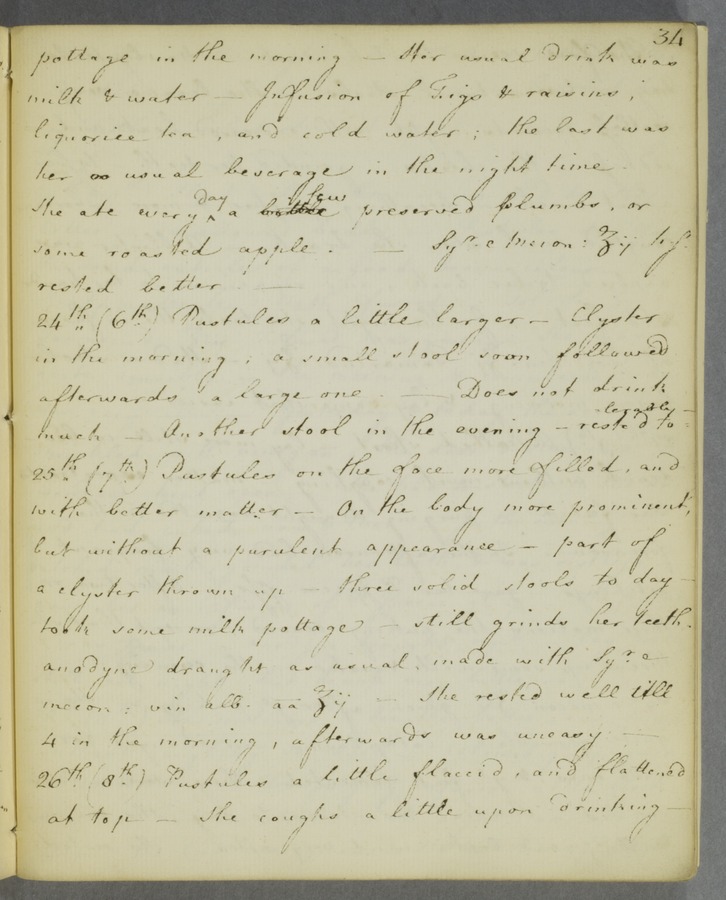 34
pottage in the morning — Her usual drink was
milk & water — Infusion of Figs & raisins;
liquorice tea, and cold water; the last was
her usual beverage in the night time
She ate every day a few preserved plumbs, or
some roasted apple. — Syr. e Mecon: ʒij h.s.
rested better —
24th (6th) Pustules a little larger — Clyster
in the morning; a small stool soon followed
afterwards a large one. — Does not drink
much — Another stool in the evening — rested to-lerably —
25th (7th) Pustules on the face more filled, and
with better matter — On the body more prominent,
but without a purulent appearance — part of
a clyster thrown up — three solid stools to day —
took some milk pottage — still grinds her teeth.
anodyne draught as usual, made with Syr. e
mecon: vin alb. aa ʒij — She rested well till
4 in the morning, afterwards was uneasy —
26th (8th) Pustules a little flaccid, and flattened
at top — She coughs a little upon drinking —